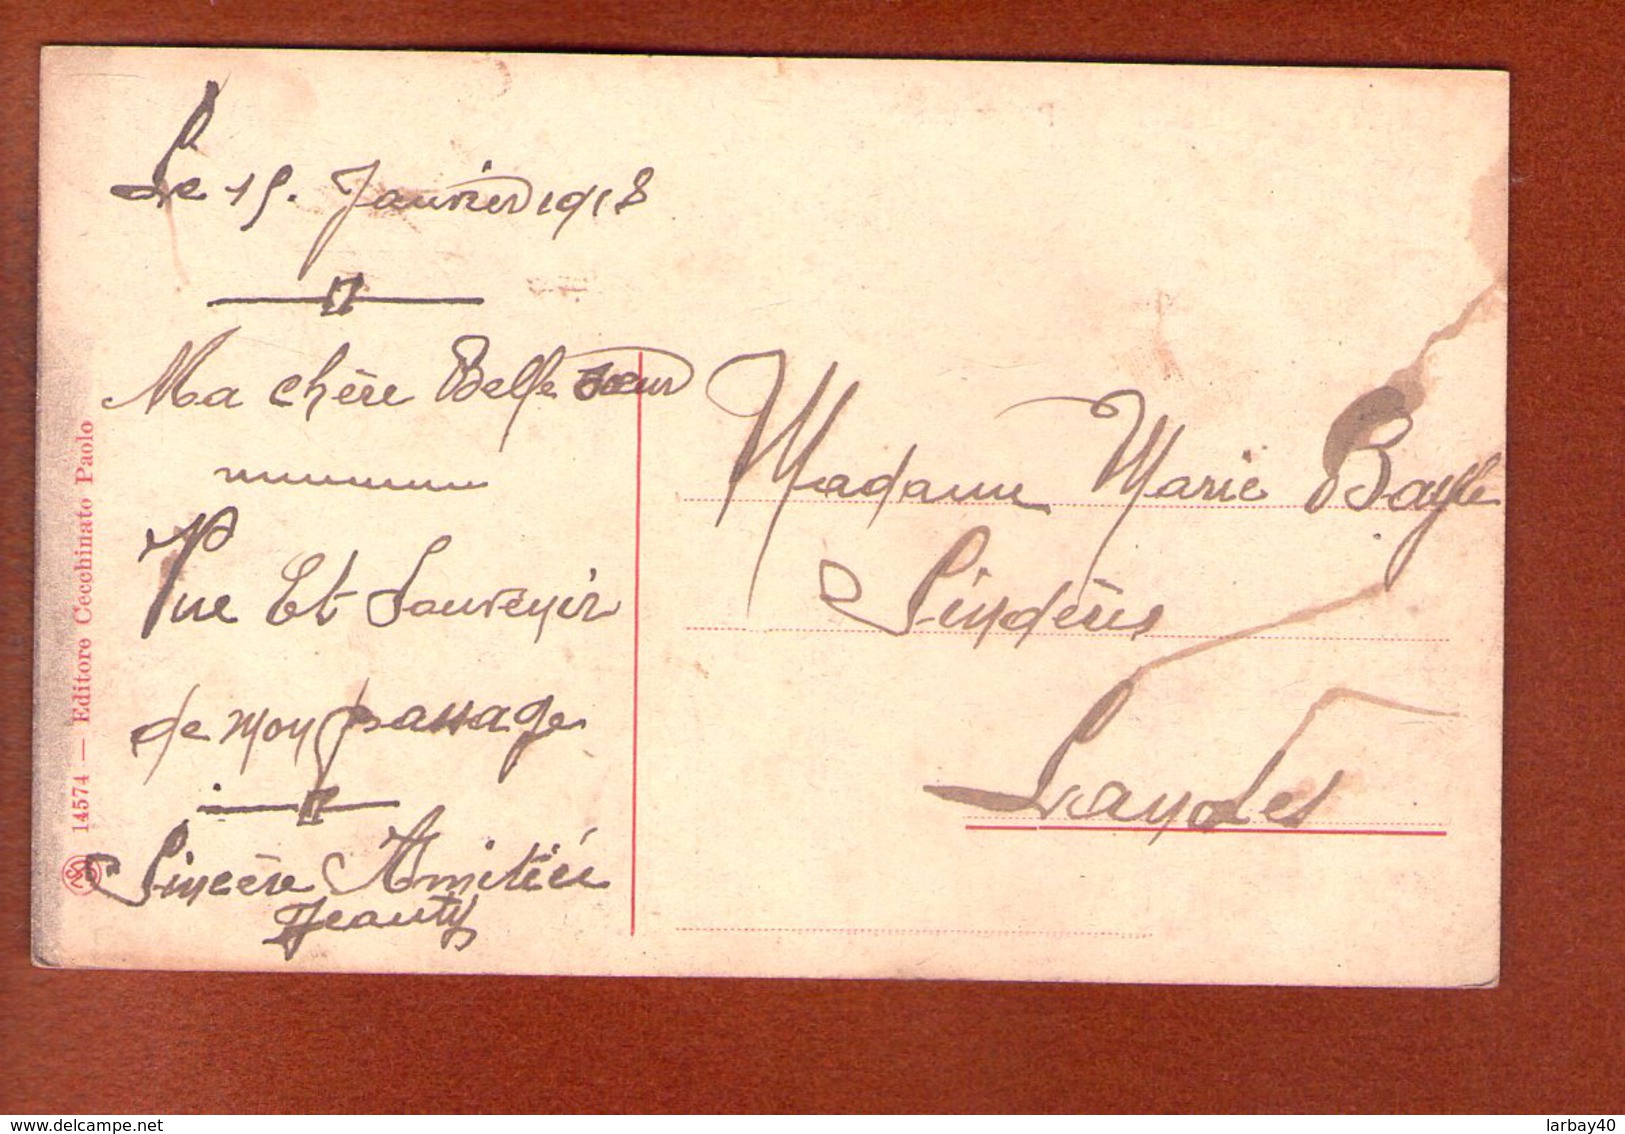 Le 15. Janvier 1918
Ma chère Belle sœur
Vue Et Souvenir
de mon passage
Sincère Amitiée
Jeanty
Madame Marie Bayle
Sindères
Landes
14574 — Editore Cecchinato Paolo
delcampe.net
larbay40